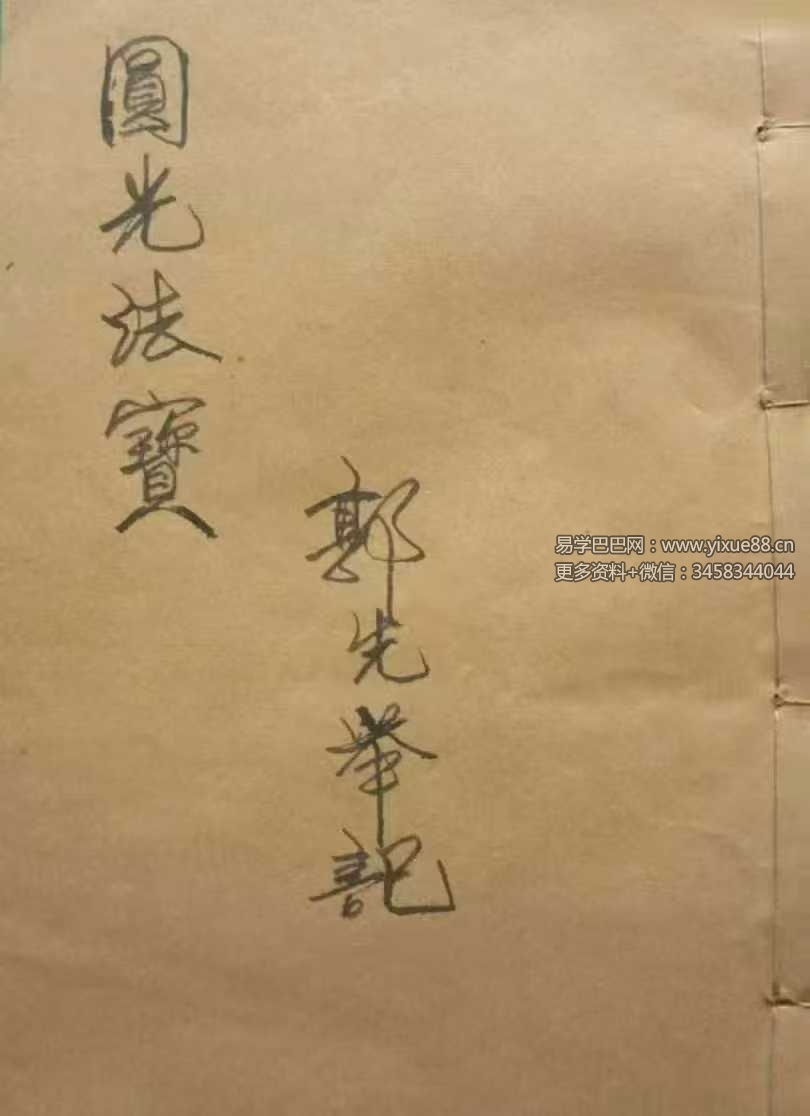 圓光法寶
郭先举記
易学巴巴网：www.yixue88.cn
更多资料+微信：3458344044